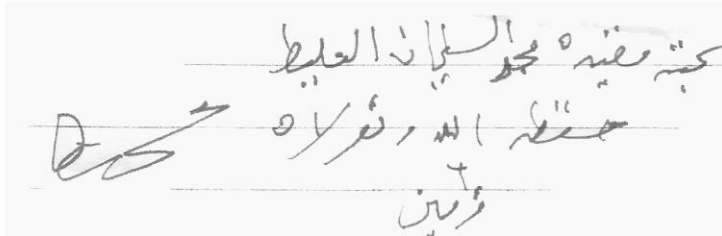 محبة مقتنيه محمد السليمان العليط
حفظه الله وتولاه
آمين